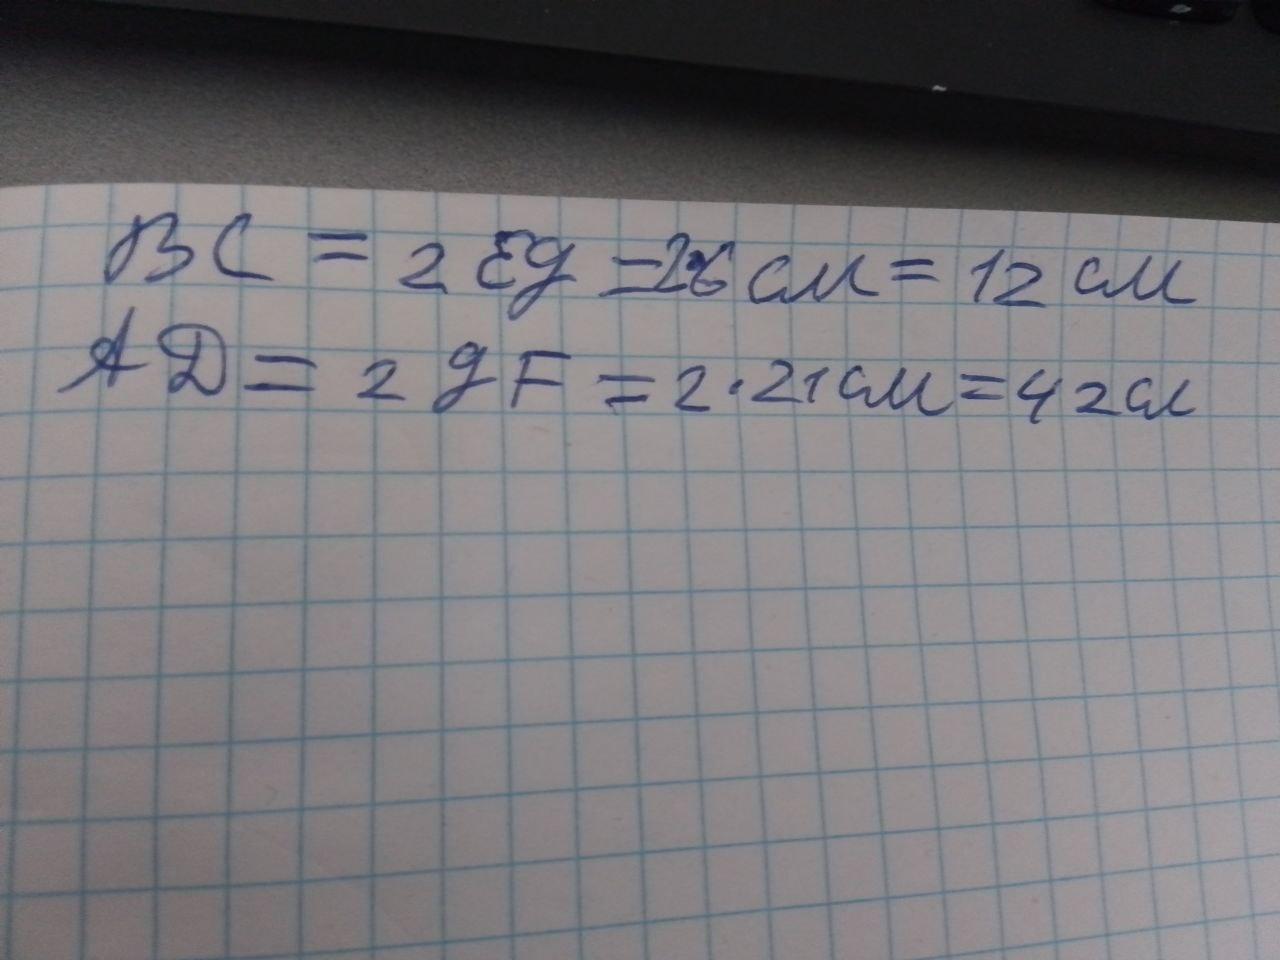 BC = 2 Eg = 2·6 см = 12 см
AD = 2 gF = 2·21 см = 42 см